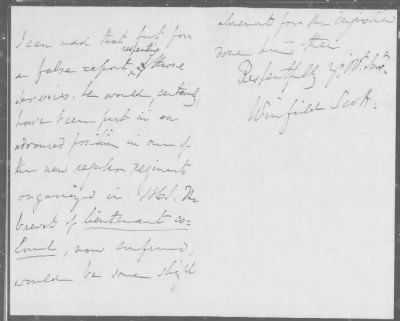 I can add that but for
a false report, respecting those
services, he would, certainly,
have been put in an
advanced position in one of
the new regular regiments
organized in 1861. The
brevet of lieutenant co-
lonel, now conferred,
would be some slight
atonement for the injustice
done him then
Respectfully yr. ob. Servt.
Winfield Scott.